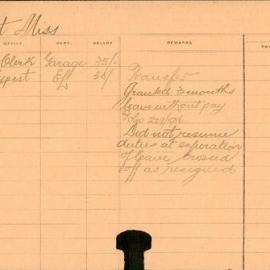 t Miss
OFFICE DEPT. SALARY REMARKS
Clerk Garage 35/-
Transfer
Granted 3 months
leave without pay
Did not resume
duties at expiration
of leave crossed
off as resigned